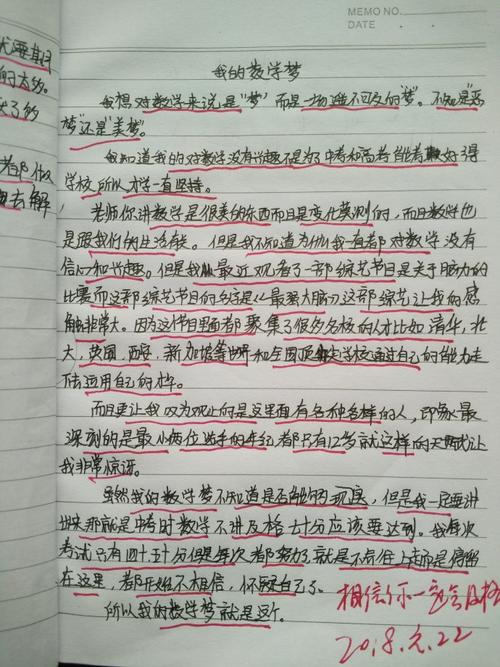 MEMO NO.
DATE
我的数学梦
我想对数学来说是"梦"而是一场遥不可及的"梦"。不知是"恶
梦"还是"美梦"。
我知道我的对数学没有兴趣不是为了中考和高考能考好得
学校所以才一直坚持。
老师你讲数学是很美的东西而且是变化莫测的,而且数学也
是跟我们的生活有关。但是我不知道为什么我一直都对数学没有
信心和兴趣。但是我从最近观看了一部综艺节目是关于脑力的
比赛而这部综艺节目的名字是《最强大脑》这部综艺让我的感
触非常大。因为这个节目里面都聚集了很多名校的人才比如清华,北
大,英国,西安,新加坡等世界和全国顶尖大学校通过自己的能力走
陆运用自己的
而且更让我叹为观止的是这里面有各种各样的人,印象最
深刻的是最小两位选手的年纪都只有12岁就这样的天赋让
我非常惊讶。
虽然我的数学梦不知道是否能够实现,但是我一定要讲
出来那就是中考时数学不讲及格十分应该要达到。我每次
考试只有四十五十分但是每次都努力了就是不前往上走而是停留
在这里,都开始不相信,怀疑自己了。
所以我的数学梦就是这个。
相信你一定会及格
22